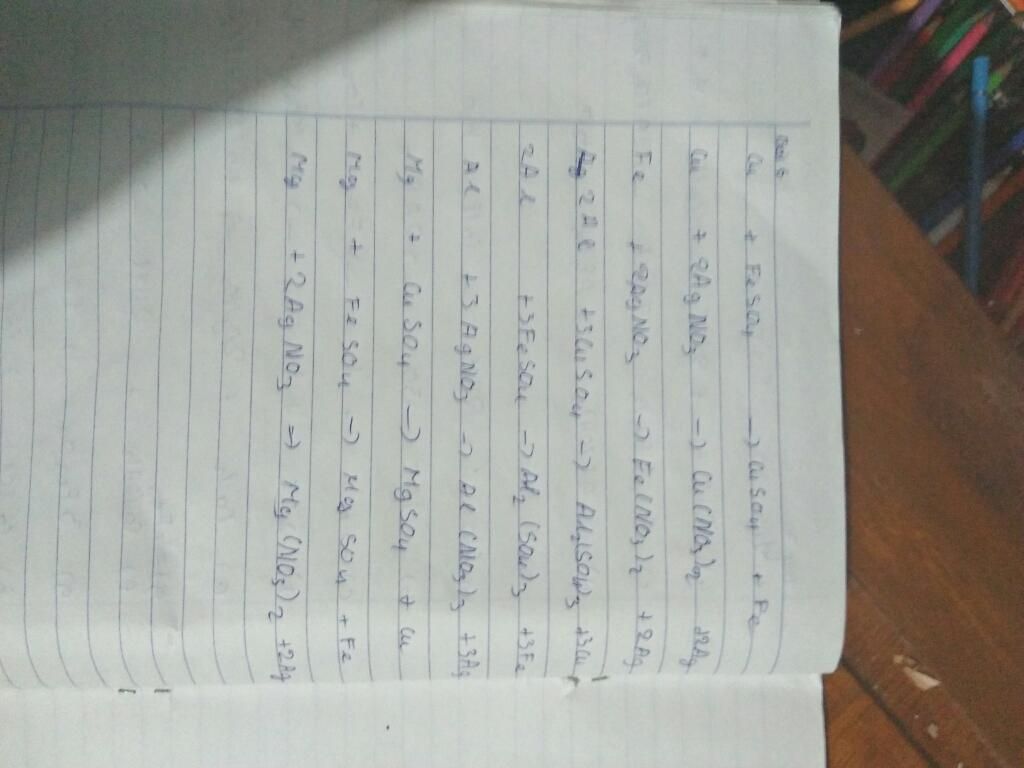 Cu + FeSO4 -> CuSO4 + Fe
Cu + 2AgNO3 -> Cu(NO3)2 + 2Ag
Fe + 2AgNO3 -> Fe(NO3)2 + 2Ag
2Al + 3CuSO4 -> Al2(SO4)3 + 3Cu
2Al + 3FeSO4 -> Al2(SO4)3 + 3Fe
Al + 3AgNO3 -> Al(NO3)3 + 3Ag
Mg + CuSO4 -> MgSO4 + Cu
Mg + FeSO4 -> MgSO4 + Fe
Mg + 2AgNO3 -> Mg(NO3)2 + 2Ag